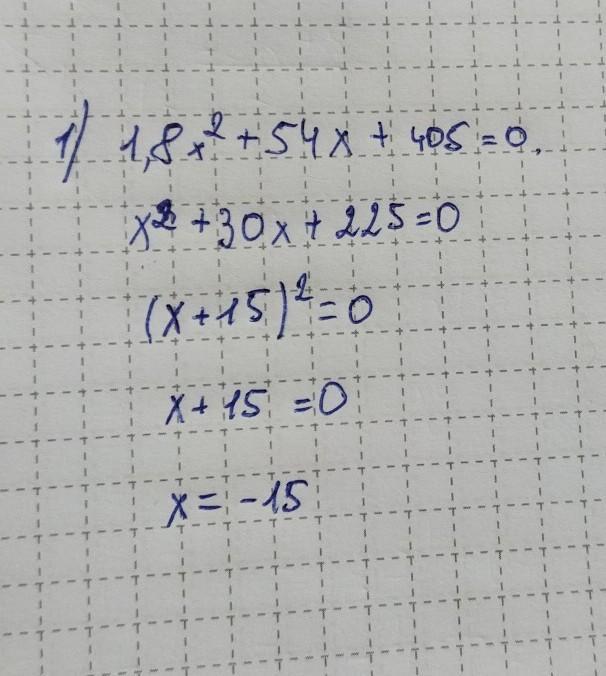 1) 1,8x² + 54x + 405 = 0.
x² + 30x + 225 = 0
(x + 15)² = 0
x + 15 = 0
x = -15